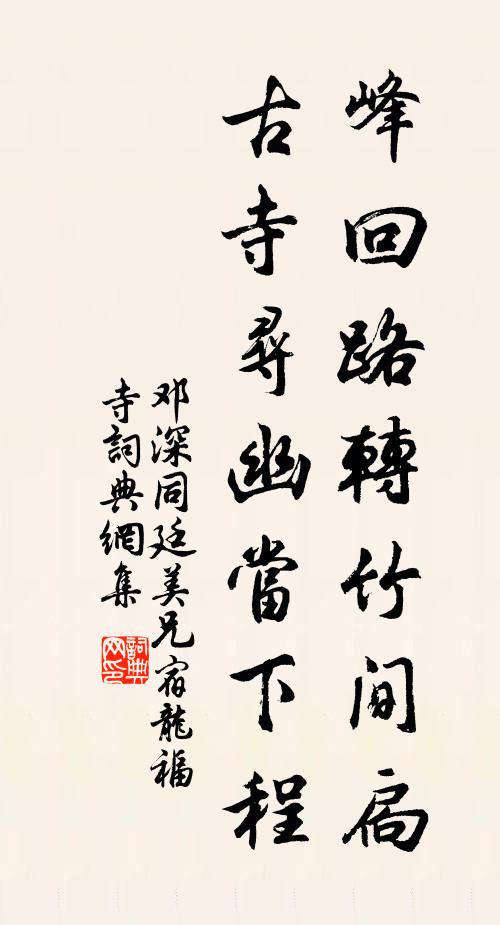 峰回路轉竹間扃
古寺尋幽當下程
邓深同廷美兄宿龍福
寺詞典網集
詞典
网印